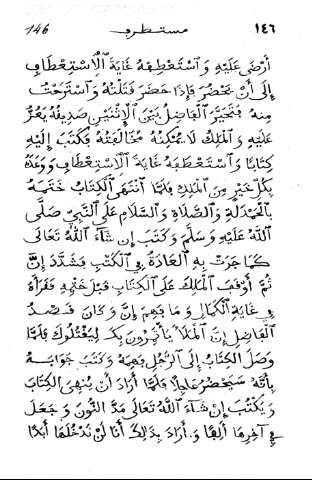 146 مستطرف ١٤٦
أرضى عليه واستعطفه غاية الاستعطاف
إلى أن يحضر فإذا حضر قتلته واسترحت
منه فتحير الفاضل بين الاثنين صديقه يعز
عليه والملك لا يمكنه مخالفته فكتب إليه
كتابا واستعطفه غاية الاستعطاف ووعده
بكل خير من الملك فلما انتهى الكتاب ختمه
بالحمدلة والصلاة والسلام على النبي صلى
الله عليه وسلم وكتب إن شاء الله تعالى
كما جرت به العادة في الكتب فشدد إن
ثم أوقف الملك على الكتاب قبل ختمه فقرأه
في غاية الكمال وما فهم إن وكان قصد
الفاضل إن الملأ يأتمرون بك ليقتلوك فلما
وصل الكتاب إلى الرجل فهمه وكتب جوابه
بأنه سيحضر عاجلا فلما أراد أن ينهي الكتاب
ويكتب إن شاء الله تعالى مد النون وجعل
في آخرها ألفا وأراد بذلك أنا لن ندخلها أبدا